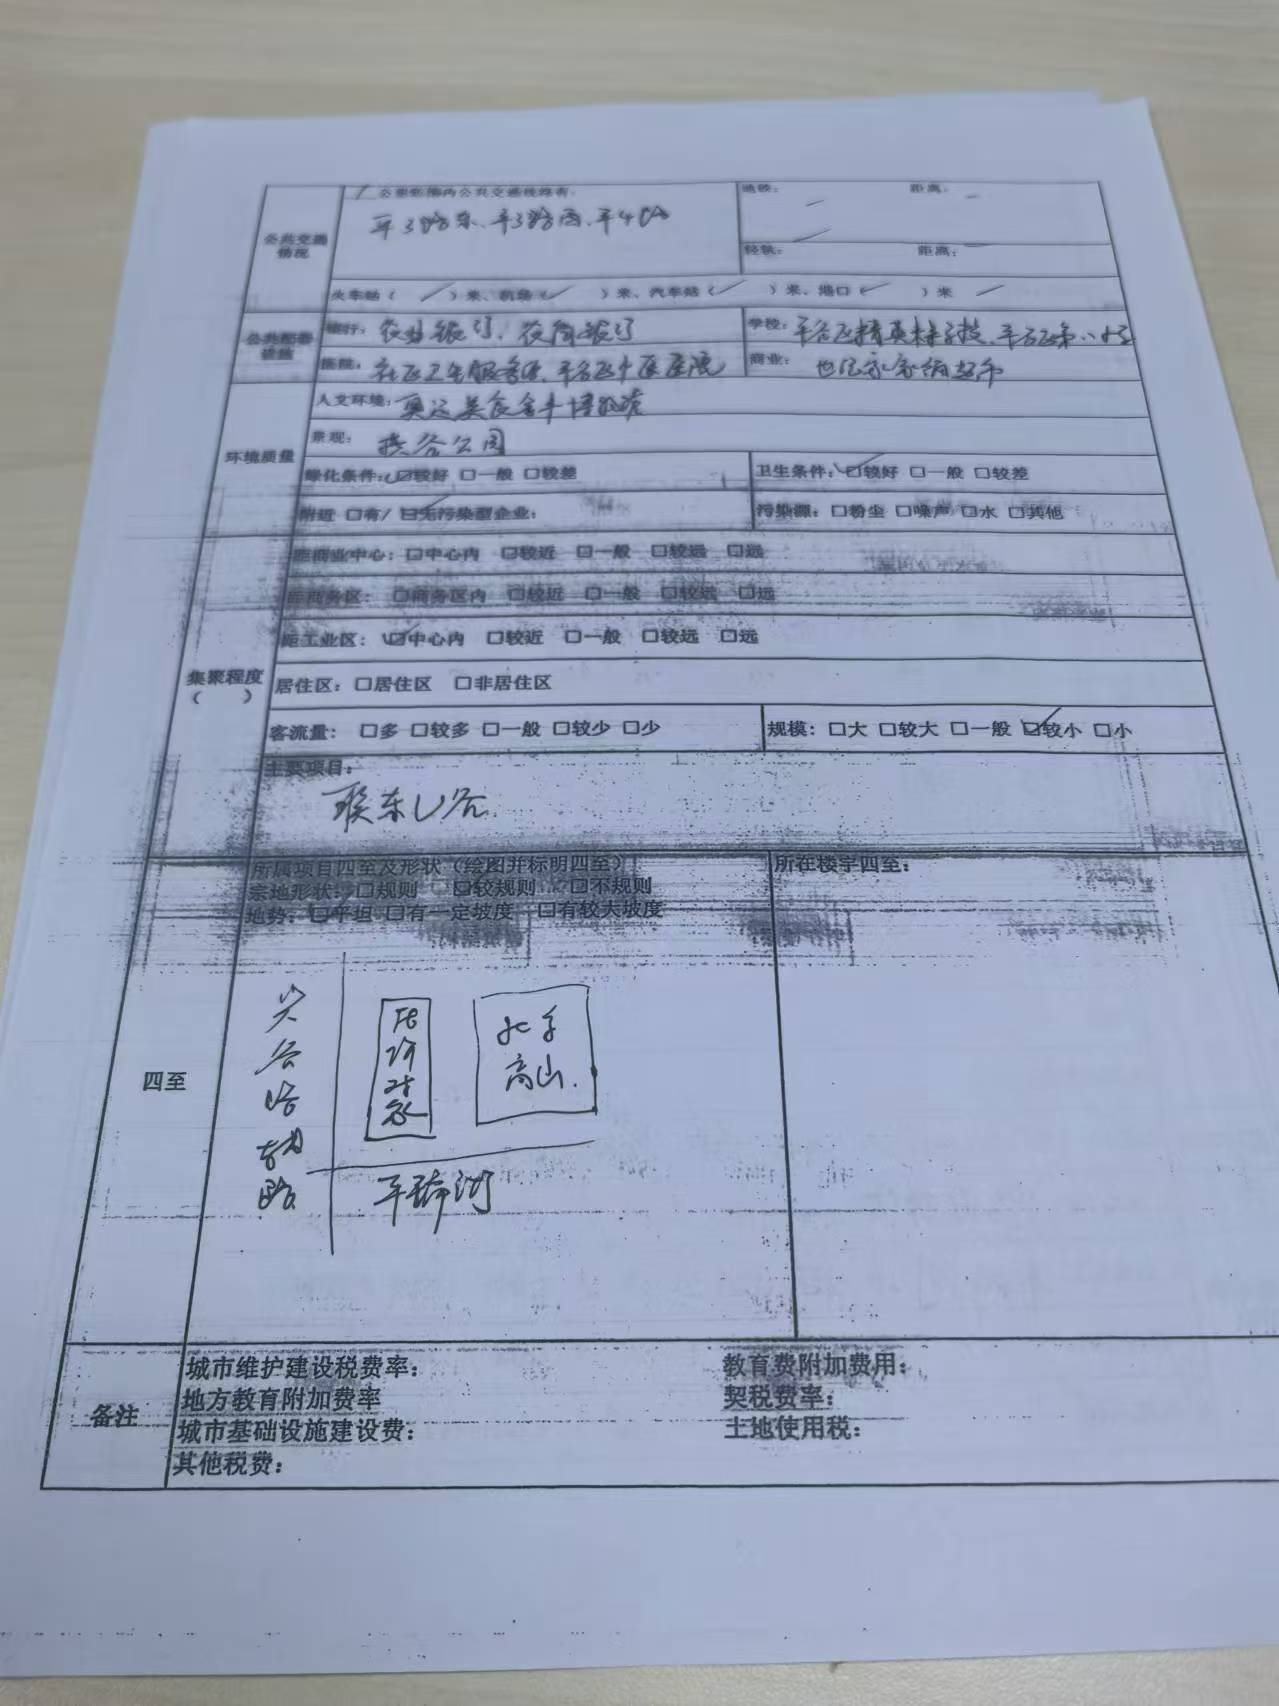 公里范围内公共交通线路有:
地铁: 距离:
公共交通情况
平3路东、平3路西、平4路
轻轨: 距离:
火车站( )米、机场( )米、汽车站( )米、港口( )米
公共配套设施
银行: 农业银行、农商银行
学校:
医院: 社区卫生服务、平谷区中医医院
商业:
环境质量
人文环境: 奥运美食
景观: 谷公园
绿化条件: ☑较好 □一般 □较差
卫生条件: ☑较好 □一般 □较差
附近 □有/ ☑无污染型企业:
污染源: □粉尘 □噪声 □水 □其他
集聚程度
( )
距商业中心: □中心内 □较近 □一般 □较远 □远
距商务区: □商务区内 □较近 □一般 □较远 □远
距工业区: ☑中心内 □较近 □一般 □较远 □远
居住区: □居住区 □非居住区
客流量: □多 □较多 □一般 □较少 □少
规模: □大 □较大 □一般 ☑较小 □小
主要项目:
联东U谷
四至
所属项目四至及形状(绘图并标明四至)
所在楼宇四至:
宗地形状: □规则 ☑较规则 □不规则
地势: ☑平坦 □有一定坡度 □有较大坡度
谷
辅
路
估
价
对
象
北京
高山.
平
备注
城市维护建设税费率:
教育费附加费用:
地方教育附加费率
契税费率:
城市基础设施建设费:
土地使用税:
其他税费: